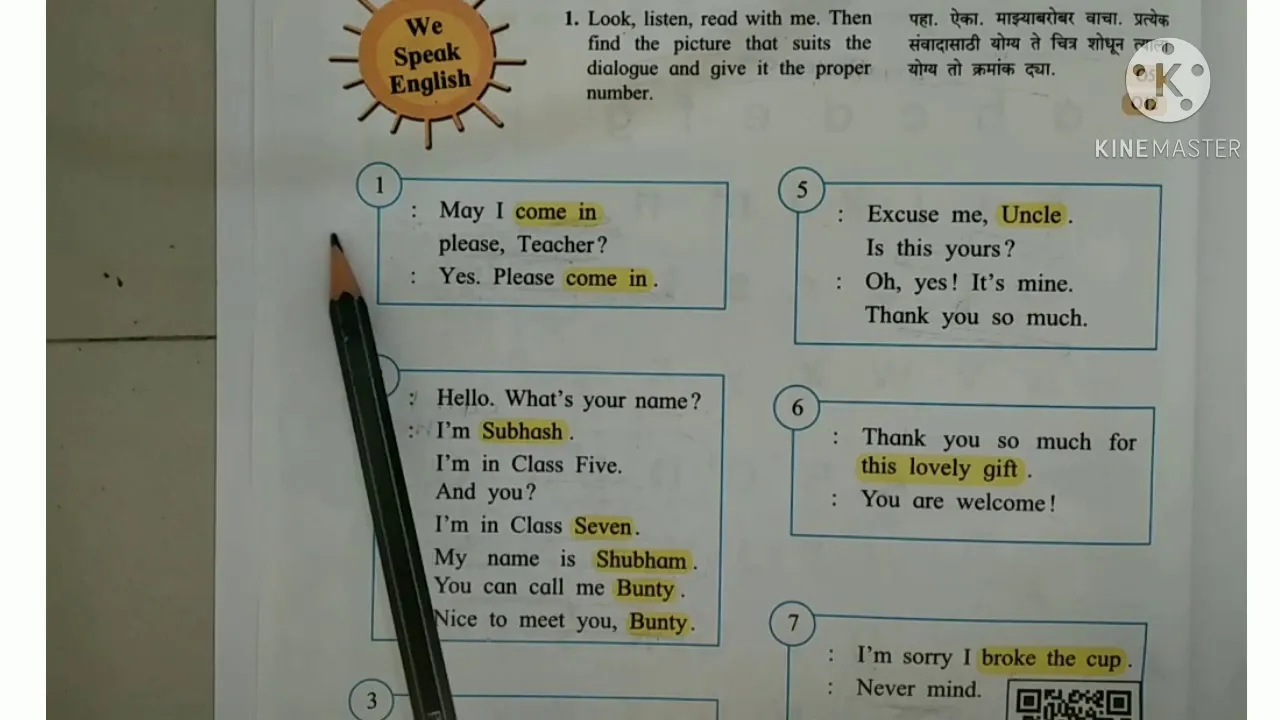 We
Speak
English
1. Look, listen, read with me. Then
find the picture that suits the
dialogue and give it the proper
number.
पहा. ऐका. माझ्याबरोबर वाचा. प्रत्येक
संवादासाठी योग्य ते चित्र शोधून त्याला
योग्य तो क्रमांक द्या.
K
KINEMASTER
1
: May I come in
please, Teacher?
: Yes. Please come in.
: Hello. What's your name?
: I'm Subhash.
I'm in Class Five.
And you?
I'm in Class Seven.
My name is Shubham.
You can call me Bunty.
Nice to meet you, Bunty.
3
5
: Excuse me, Uncle.
Is this yours?
: Oh, yes! It's mine.
Thank you so much.
6
: Thank you so much for
this lovely gift.
: You are welcome!
7
: I'm sorry I broke the cup.
: Never mind.